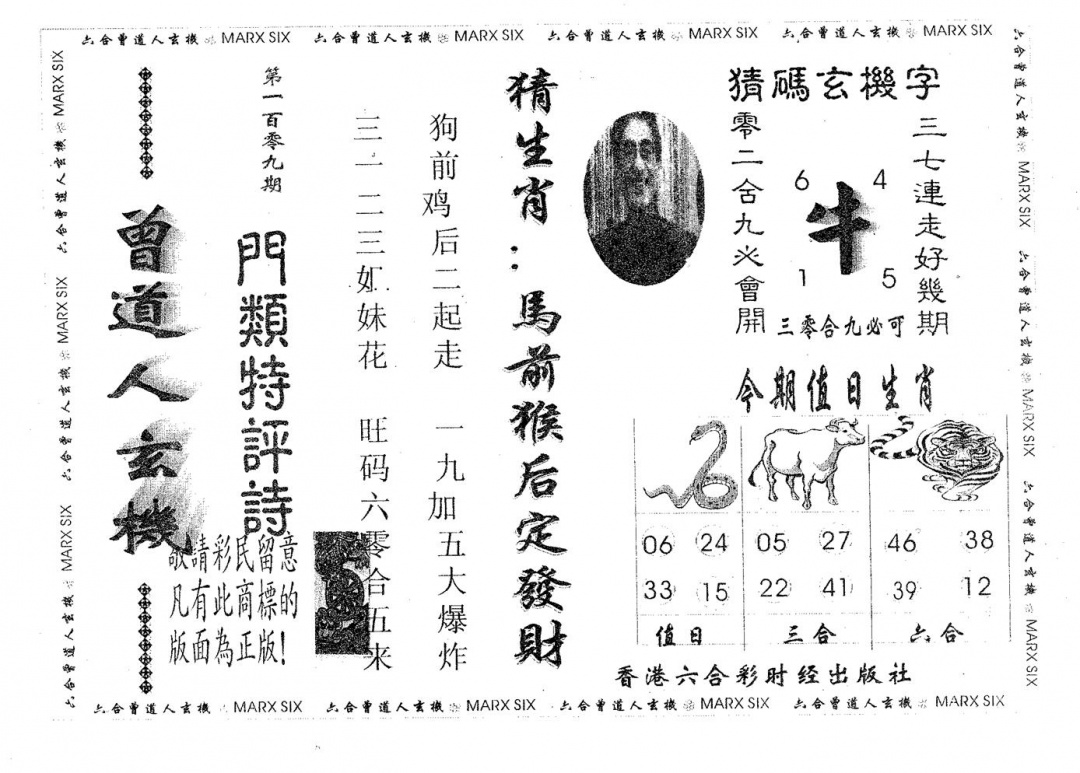 六合曾道人玄機 MARX SIX 六合曾道人玄機 MARX SIX 六合曾道人玄機 MARX SIX 六合曾道人玄機 MARX SIX
猜碼玄機字
三七連走好幾期
零二舍九必會開
6 4
牛
1 5
三零合九必可
今期值日生肖
06 24 05 27 46 38
33 15 22 41 39 12
值日 三合 六合
香港六合彩时经出版社
猜生肖:馬前猴后定發財
狗前鸡后二起走 一九加五大爆炸
三一二三姐妹花 旺码六零合五来
第一百零九期
門類特評詩
曾道人玄機
敬請彩民留意
凡有此商標的
版面為正版!
六合曾道人玄機 MARX SIX 六合曾道人玄機 MARX SIX 六合曾道人玄機 MARX SIX
六合曾道人玄機 MARX SIX 六合曾道人玄機 MARX SIX 六合曾道人玄機 MARX SIX
六合曾道人玄機 MARX SIX 六合曾道人玄機 MARX SIX 六合曾道人玄機 MARX SIX 六合曾道人玄機 MARX SIX